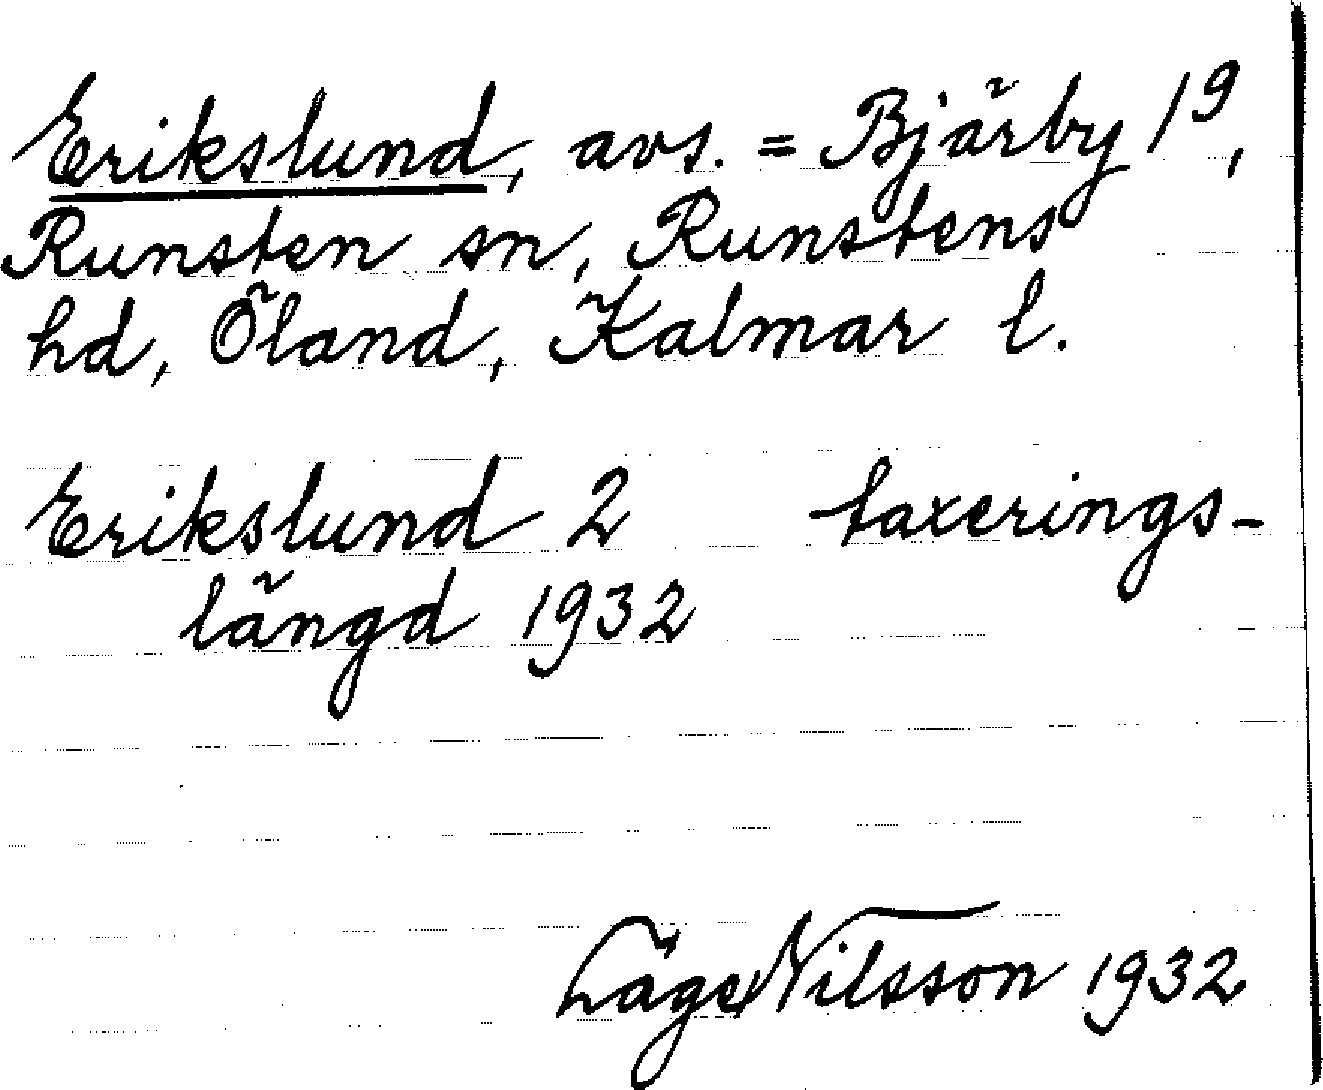 Erikslund, avs. = Bjärby 1⁹,
Runsten sn, Runstens
hd, Öland, Kalmar l.
Erikslund 2 taxerings-
längd 1932
Låge Nilsson 1932